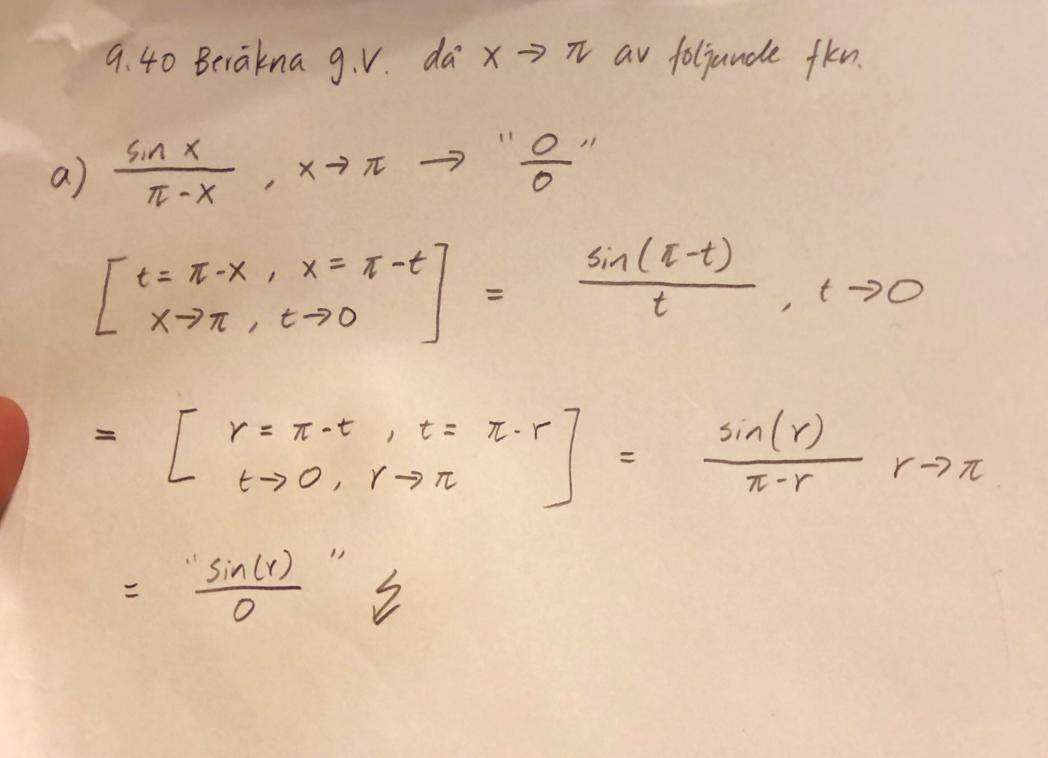 9.40 Beräkna g.v. då x → π av följande fkn.
a) sin x / π-x , x→π → "0/0"
[t = π-x , x = π-t
x→π , t→0] = sin(π-t) / t , t→0
= [r = π-t , t = π-r
t→0, r→π] = sin(r) / π-r r→π
= "sin(r) / 0" ↯